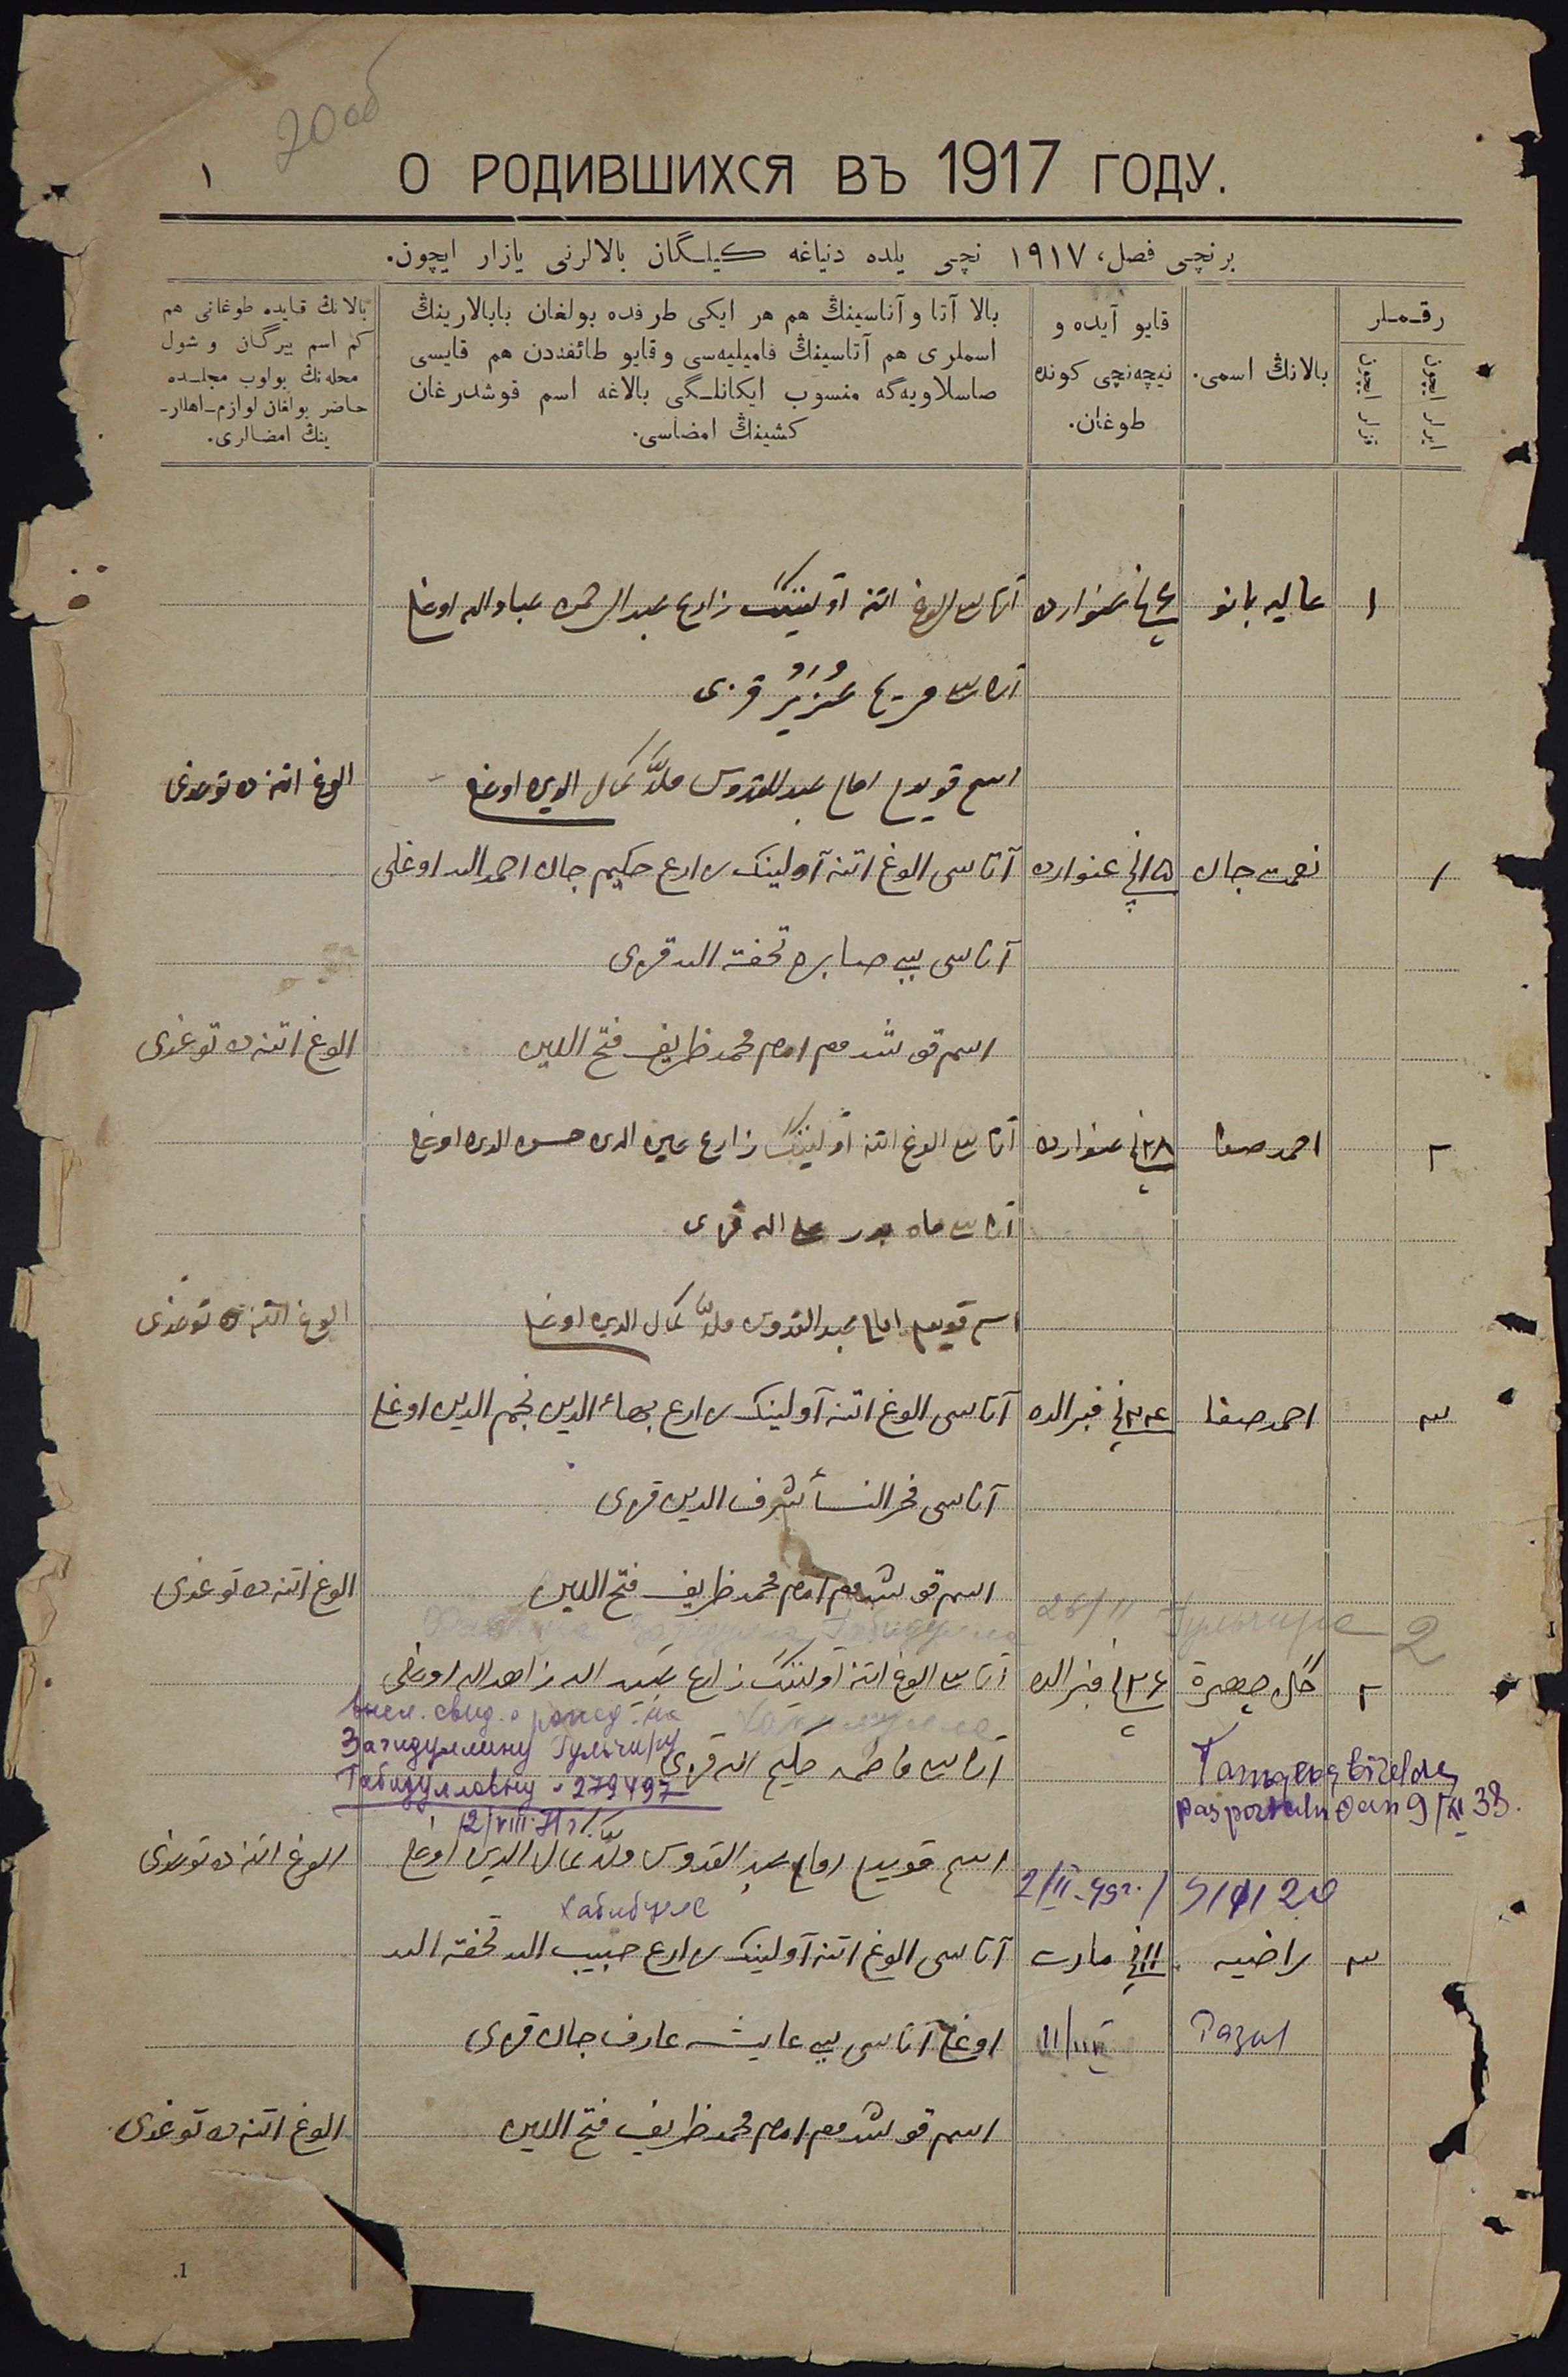 20об
О РОДИВШИХСЯ ВЪ 1917 ГОДУ.
١
برنچی فصل، ١٩١٧ نچی یلده دنیاغه کیلـگان بالالرنی یازار ایچون.
رقـملر
ایرلر ایچون
قزلر ایچون
بالانڭ اسمی.
قایو آیده و
نیچەنچی کونده
طوغان.
بالا آتا و آناسینڭ هم هر ایکی طرفده بولغان بابالارینڭ
اسملری هم آتاسینڭ فامیلیەسی و قایو طائفەدن هم قایسی
صاسلاویەگه منسوب ایکانلـگی بالاغه اسم قوشدرغان
کشینڭ امضاسی.
بالانڭ قایده طوغانی هم
کم اسم بیرگان و شول
محلەنڭ بولوب مجلسده
حاضر بولغان لوازم-اهللر-
ینڭ امضالری.
١
عالیه بانو
غنوارده
آتاسی الوغ اتنه آولینڭ زارع عبدالرحمن عبادالله اوغلی
آناسی مریم عُزَیرُ قزی
اسم قویدم امام عبدالقدوس ملّا کمال الدین اوغلی
الوغ اتنه ده توغدی
١
نعمت جان
١٥نچی غنوارده
آتاسی الوغ اتنه آولینک زارع حکیم جان احمدالله اوغلی
آناسی بیبی صابره تحفة الله قزی
اسم قوشدم امام محمد ظریف فتح الدین
الوغ اتنه ده توغدی
٢
احمد صفا
٢٨نچی غنوارده
آتاسی الوغ اتنه آولینڭ زارع عین الدین حسن الدین اوغلی
آناسی ماه بدر الله قزی
اسم قویدم امام عبدالقدوس ملّا کمال الدین اوغلی
الوغ اتنه ده توغدی
٣
احمد صفا
فبرالده
آتاسی الوغ اتنه آولینک زارع بهاءالدین نجم الدین اوغلی
آناسی فخرالنساء شرف الدین قزی
اسم قوشدم امام محمد ظریف فتح الدین
الوغ اتنه ده توغدی
2
Гульчире
26/II
٢
گل چهره
٢٦نچی فبرالده
آتاسی الوغ اتنه آولینڭ زارع عبید الله زاهدالله اوغلی
آناسی فاطمه حکیم الله قزی
свид. о рожд.
Загидуллину Гульчиру
Габидулловну - 279497
12/VIII
Tanьqlьq birelde
pasportalu öcen 9/XI 33.
اسم قویدم امام عبد القدوس ملّا کمال الدین اوغلی
الوغ اتنه ده توغدی
2/II-49г.
Хабибулле
٣
راضیه
١١نچی مارت
آتاسی الوغ اتنه آولینک زارع حبیب الله تحفة الله
11/III
اوغلی آناسی بیبی عایشه عارف جان قزی
اسم قوشدم امام محمد ظریف فتح الدین
الوغ اتنه ده توغدی
1.